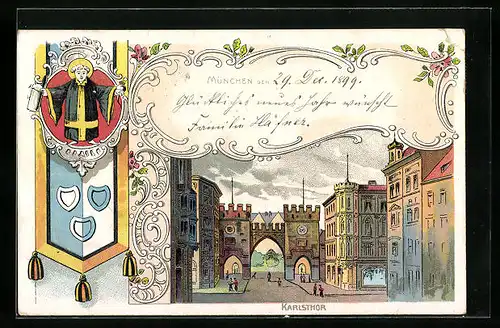 München den 29. Dec. 1899.
Glückliches neues Jahr wünscht
Familie Häfner.
Karlsthor